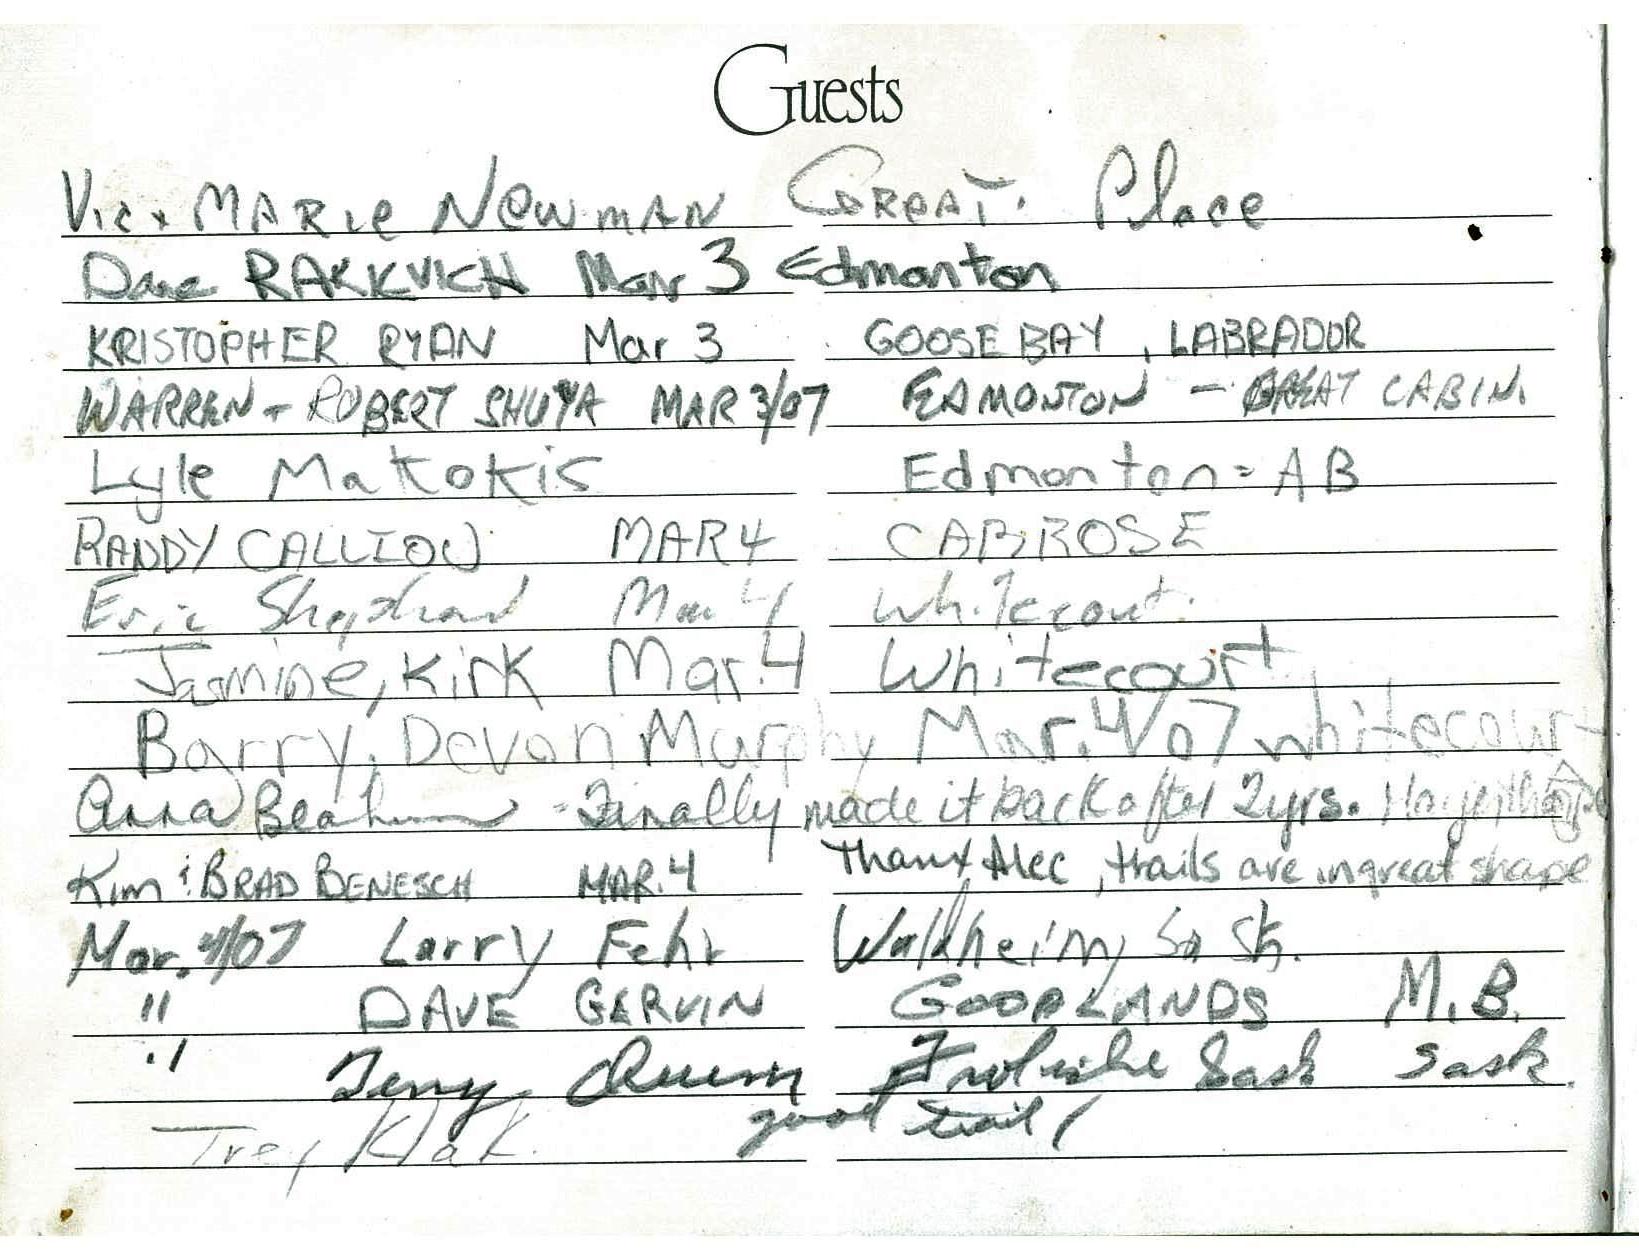 Guests
Vic + MARIE NewmAN GREAT. Place
Dave RAKKVICH Mar 3 Edmonton
KRISTOPHER RYAN Mar 3 GOOSE BAY, LABRADOR
WARREN + ROBERT SHUYA MAR 3/07 EDMONTON - GREAT CABIN.
Lyle Makokis Edmonton - AB
RANDY CALLIOU MAR 4 CABROSE
Eric Shephard Mar 4 Whitecourt.
Jasmine, Kirk Mar. 4 Whitecourt
Barry, Devon Murphy Mar. 4/07 whitecourt
Anna - Finally made it back after 2yrs.
Kim & BRAD BENESCH MAR. 4 Thanx Alec, trails are in great shape
Mar. 4/07 Larry Fehr Waldheim, Sask.
" DAVE GERVIN GOODLANDS M.B.
" Terry Quinn Frobishe Sask Sask.
good trail!
Trey Klak.